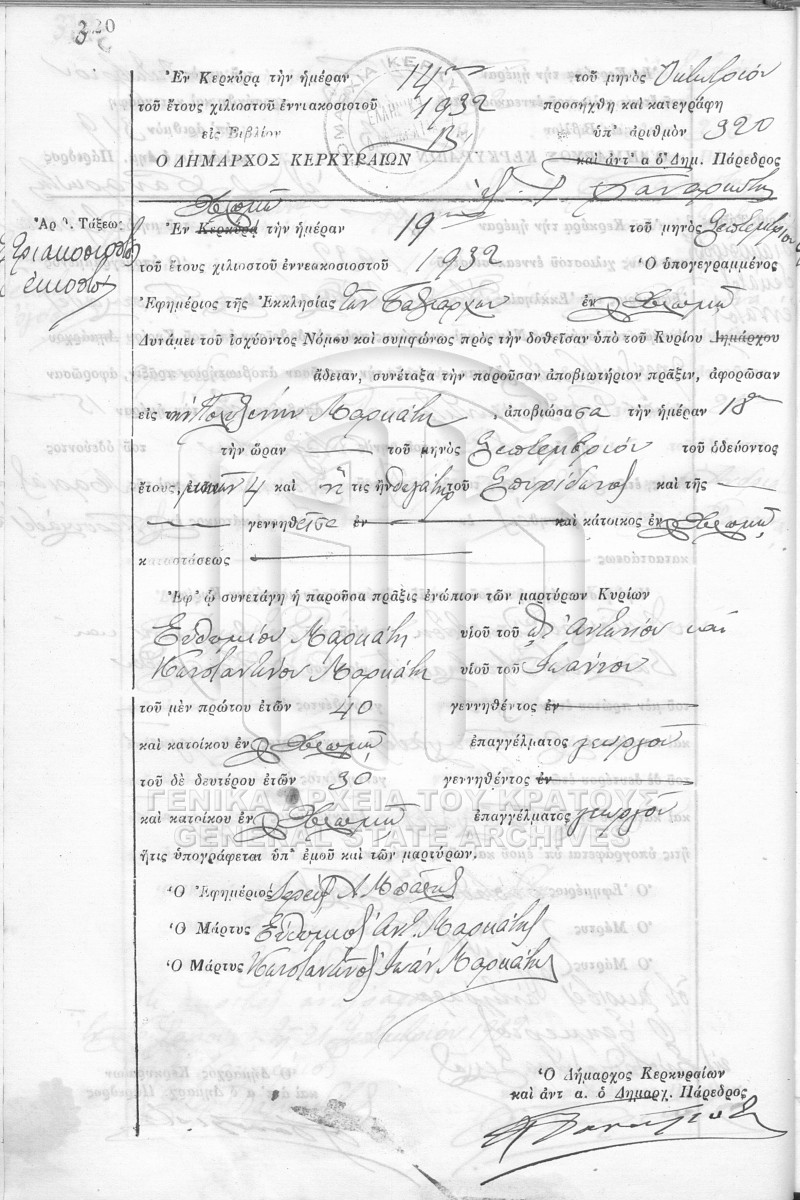 320
Ἐν Κερκύρᾳ τὴν ἡμέραν 14ην τοῦ μηνὸς Ὀκτωβρίου
τοῦ ἔτους χιλιοστοῦ ἐννιακοσιοτοῦ 1932 προσήχθη καὶ κατεγράφη
εἰς Βιβλίον Β ὑπ' ἀριθμὸν 320
Ο ΔΗΜΑΡΧΟΣ ΚΕΡΚΥΡΑΙΩΝ καὶ ἀντ' α ὁ Δημ. Πάρεδρος
Ἀρ. Τάξεως
Τριακοσιοστὸς
εἰκοστὸς
Ἐν Κερκύρᾳ τὴν ἡμέραν 19ην τοῦ μηνὸς Σεπτεμβρίου
τοῦ ἔτους χιλιοστοῦ ἐννεακοσιοστοῦ 1932 Ὁ ὑπογεγραμμένος
Ἐφημέριος τῆς Ἐκκλησίας τῶν Ταξιαρχῶν ἐν
Δυνάμει τοῦ ἰσχύοντος Νόμου καὶ συμφώνως πρὸς τὴν δοθεῖσαν ὑπὸ τοῦ Κυρίου Δημάρχου
ἄδειαν, συνέταξα τὴν παροῦσαν ἀποβιωτήριον πρᾶξιν, ἀφορῶσαν
εἰς τὴν Πολυξένην Μαρκάτη, ἀποβιώσασα τὴν ἡμέραν 18ην
τὴν ὥραν τοῦ μηνὸς Σεπτεμβρίου τοῦ ὁδεύοντος
ἔτους, μηνῶν 4 καὶ ἥτις ἦν θυγάτηρ τοῦ Σπυρίδωνος καὶ τῆς
γεννηθεῖσα ἐν καὶ κάτοικος ἐν
καταστάσεως
Ἐφ' ᾧ συνετάγη ἡ παροῦσα πρᾶξις ἐνώπιον τῶν μαρτύρων Κυρίων
Εὐθυμίου Μαρκάτη υἱοῦ τοῦ Ἀντωνίου καὶ
Κωνσταντίνου Μαρκάτη υἱοῦ τοῦ Ἰωάννου
τοῦ μὲν πρώτου ἐτῶν 40 γεννηθέντος ἐν
καὶ κατοίκου ἐν ἐπαγγέλματος γεωργοῦ
τοῦ δὲ δευτέρου ἐτῶν 30 γεννηθέντος ἐν
καὶ κατοίκου ἐν ἐπαγγέλματος γεωργοῦ
ΓΕΝΙΚΑ ΑΡΧΕΙΑ ΤΟΥ ΚΡΑΤΟΥΣ
GENERAL STATE ARCHIVES
ἥτις ὑπογράφεται ὑπ' ἐμοῦ καὶ τῶν μαρτύρων.
Ὁ Ἐφημέριος
Ὁ Μάρτυς Εὐθύμιος Ἀντ. Μαρκάτης
Ὁ Μάρτυς Κωνσταντῖνος Ἰωάν. Μαρκάτης
Ὁ Δήμαρχος Κερκυραίων
καὶ ἀντ α. ὁ Δημαρχ. Πάρεδρος